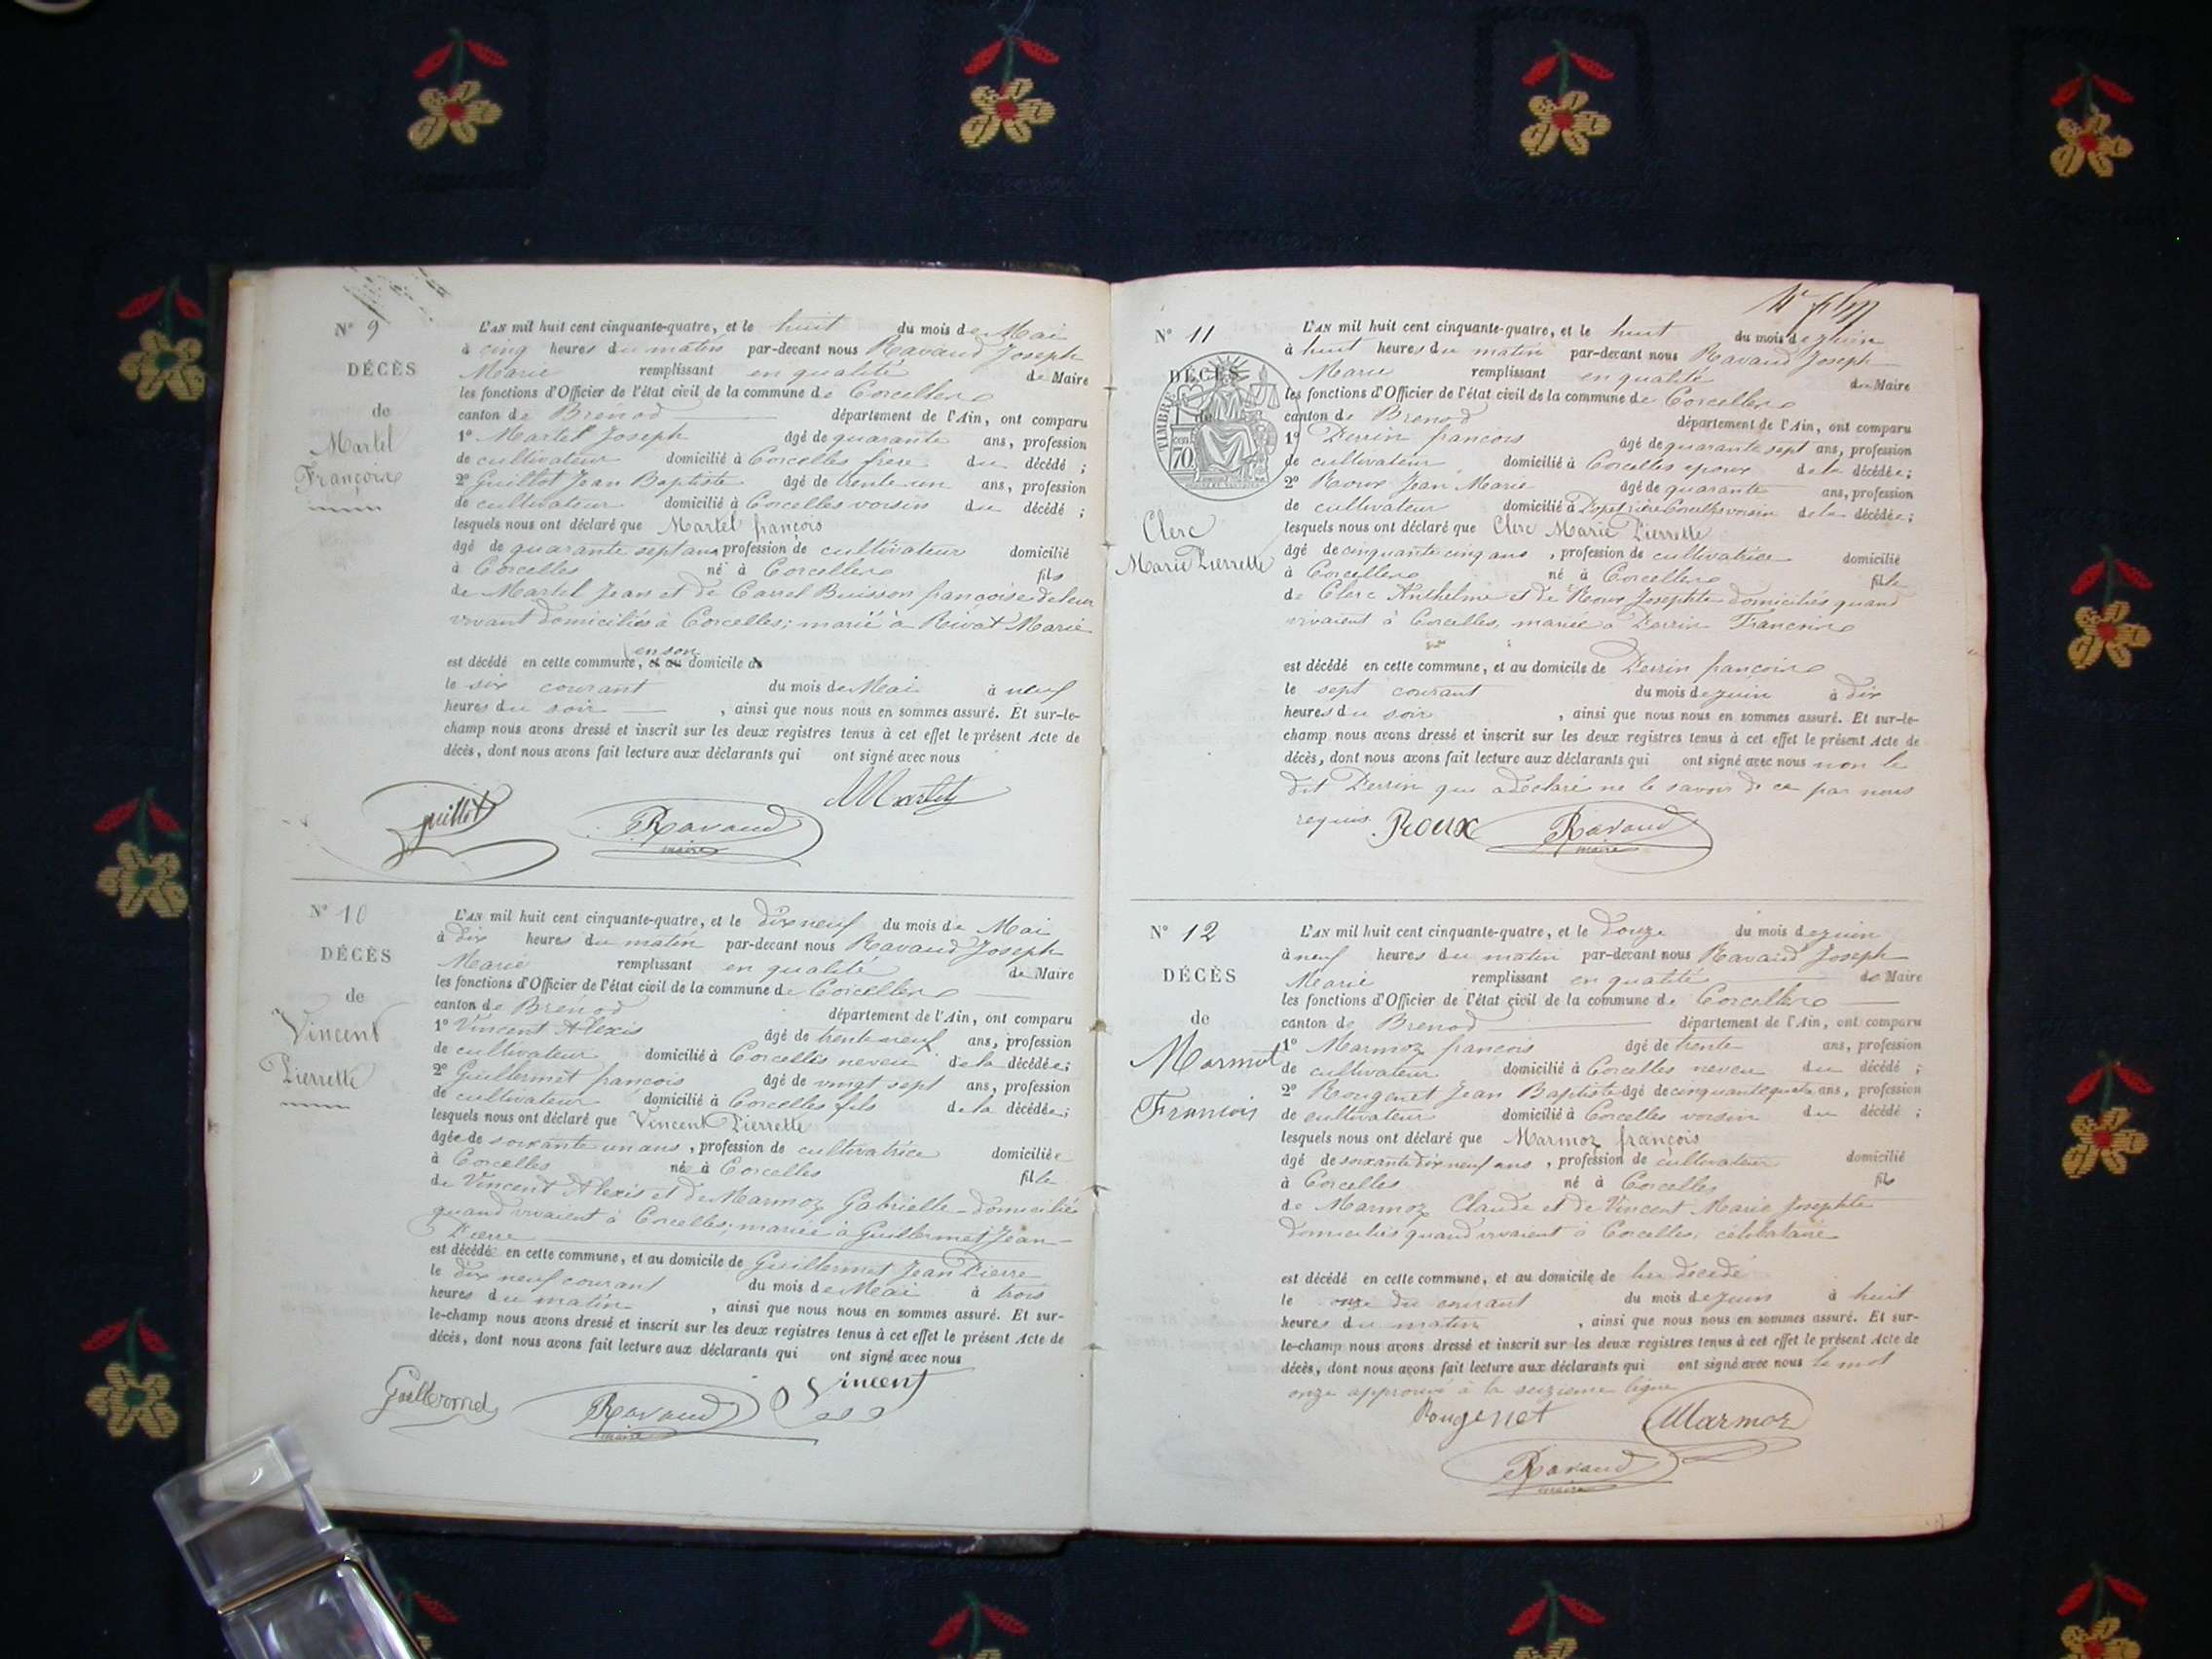 N° 9
DÉCÈS
de
Martel
François
L'AN mil huit cent cinquante-quatre, et le huit du mois de Mai
à cinq heures du matin par-devant nous Ravaud Joseph
Marie remplissant en qualité de Maire
les fonctions d'Officier de l'état civil de la commune de Corcelles
canton de Brénod département de l'Ain, ont comparu
1° Martel Joseph âgé de quarante ans, profession
de cultivateur domicilié à Corcelles frère du décédé ;
2° Guillot Jean Baptiste âgé de trente un ans, profession
de cultivateur domicilié à Corcelles voisin du décédé ;
lesquels nous ont déclaré que Martel françois
âgé de quarante sept ans profession de cultivateur domicilié
à Corcelles né à Corcelles fils
de Martel Jean et de Carrel Buisson françoise de leur
vivant domiciliés à Corcelles; marié à Rivat Marie
en son
est décédé en cette commune, et au domicile de
le six courant du mois de Mai à neuf
heures du soir , ainsi que nous nous en sommes assuré. Et sur-le-
champ nous avons dressé et inscrit sur les deux registres tenus à cet effet le présent Acte de
décès, dont nous avons fait lecture aux déclarants qui ont signé avec nous
Martel
Guillot Ravaud
maire
N° 10
DÉCÈS
de
Vincent
Pierrette
L'AN mil huit cent cinquante-quatre, et le dix neuf du mois de Mai
à dix heures du matin par-devant nous Ravaud Joseph
Marie remplissant en qualité de Maire
les fonctions d'Officier de l'état civil de la commune de Corcelles
canton de Brénod département de l'Ain, ont comparu
1° Vincent Alexis âgé de trente neuf ans, profession
de cultivateur domicilié à Corcelles neveu de la décédée;
2° Guillermet françois âgé de vingt sept ans, profession
de cultivateur domicilié à Corcelles fils de la décédée;
lesquels nous ont déclaré que Vincent Pierrette
âgée de soixante un ans , profession de cultivatrice domiciliée
à Corcelles née à Corcelles fille
de Vincent Alexis et de Marmoz Gabrielle domiciliés
quand vivaient à Corcelles; mariée à Guillermet Jean
Pierre
est décédée en cette commune, et au domicile de Guillermet Jean Pierre
le dix neuf courant du mois de Mai à trois
heures du matin , ainsi que nous nous en sommes assuré. Et sur-
le-champ nous avons dressé et inscrit sur les deux registres tenus à cet effet le présent Acte de
décès, dont nous avons fait lecture aux déclarants qui ont signé avec nous
Guillermet Ravaud Vincent
maire
N° 11
DÉCÈS
de
TIMBRE
70
Clerc
Marie Pierrette
L'AN mil huit cent cinquante-quatre, et le huit du mois de juin
à huit heures du matin par-devant nous Ravaud Joseph
Marie remplissant en qualité de Maire
les fonctions d'Officier de l'état civil de la commune de Corcelles
canton de Brenod département de l'Ain, ont comparu
1° Perrin françois âgé de quarante sept ans, profession
de cultivateur domicilié à Corcelles époux de la décédée;
2° Roux Jean Marie âgé de quarante ans, profession
de cultivateur domicilié à Corcelles voisin de la décédée;
lesquels nous ont déclaré que Clerc Marie Pierrette
âgé de cinquante cinq ans , profession de cultivatrice domicilié
à Corcelles né à Corcelles fille
de Clerc Anthelme et de Roux Josephte domiciliés quand
vivaient à Corcelles, mariée à Perrin François
est décédé en cette commune, et au domicile de Perrin françois
le sept courant du mois de juin à dix
heures du soir , ainsi que nous nous en sommes assuré. Et sur-le-
champ nous avons dressé et inscrit sur les deux registres tenus à cet effet le présent Acte de
décès, dont nous avons fait lecture aux déclarants qui ont signé avec nous non le
dit Perrin qui a déclaré ne le savoir de ce par nous
requis. Roux Ravaud
maire
N° 12
DÉCÈS
de
Marmot
François
L'AN mil huit cent cinquante-quatre, et le douze du mois de juin
à neuf heures du matin par-devant nous Ravaud Joseph
Marie remplissant en qualité de Maire
les fonctions d'Officier de l'état civil de la commune de Corcelles
canton de Brenod département de l'Ain, ont comparu
1° Marmoz françois âgé de trente ans, profession
de cultivateur domicilié à Corcelles neveu du décédé ;
2° Rougenet Jean Baptiste âgé de cinquante quatre ans, profession
de cultivateur domicilié à Corcelles voisin du décédé ;
lesquels nous ont déclaré que Marmoz françois
âgé de soixante dix neuf ans , profession de cultivateur domicilié
à Corcelles né à Corcelles fils
de Marmoz Claude et de Vincent Marie Josephte
domiciliés quand vivaient à Corcelles, célibataire
est décédé en cette commune, et au domicile de lui décédé
le onze du courant du mois de juin à huit
heures du matin , ainsi que nous nous en sommes assuré. Et sur-
le-champ nous avons dressé et inscrit sur les deux registres tenus à cet effet le présent Acte de
décès, dont nous avons fait lecture aux déclarants qui ont signé avec nous le mot
onze approuvé à la seizième ligne
Rougenet Marmoz
Ravaud
maire